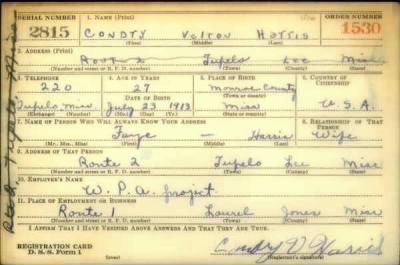 SERIAL NUMBER 1. NAME (Print) ORDER NUMBER
2815 CONDTY VELTON HARRIS 1530
(First) (Middle) (Last)
2. ADDRESS (Print)
Route 2 Tupelo Lee Miss
(Number and street or R. F. D. number) (Town) (County) (State)
3. TELEPHONE 4. AGE IN YEARS 5. PLACE OF BIRTH 6. COUNTRY OF CITIZENSHIP
220 27 Monroe County
DATE OF BIRTH (Town or county)
Tupelo Miss. July 23 1913 Miss U.S.A.
(Exchange) (Number) (Mo.) (Day) (Yr.) (State or country)
7. NAME OF PERSON WHO WILL ALWAYS KNOW YOUR ADDRESS 8. RELATIONSHIP OF THAT PERSON
Faye — Harris Wife
(Mr., Mrs., Miss) (First) (Middle) (Last)
9. ADDRESS OF THAT PERSON
Route 2 Tupelo Lee Miss
(Number and street or R. F. D. number) (Town) (County) (State)
10. EMPLOYER'S NAME
W. P. A. project
11. PLACE OF EMPLOYMENT OR BUSINESS
Route 1 Laurel Jones Miss
(Number and street or R. F. D. number) (Town) (County) (State)
I AFFIRM THAT I HAVE VERIFIED ABOVE ANSWERS AND THAT THEY ARE TRUE.
REGISTRATION CARD
D. S. S. Form 1 Condy V Harris
(Registrant's signature)